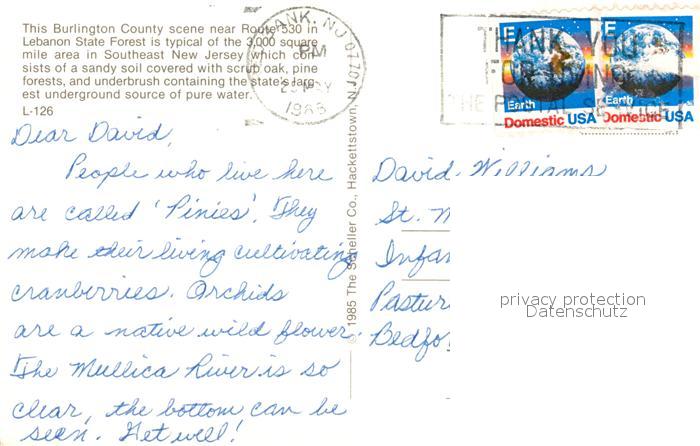 This Burlington County scene near Route 530 in
Lebanon State Forest is typical of the 3,000 square
mile area in Southeast New Jersey which con-
sists of a sandy soil covered with scrub oak, pine
forests, and underbrush containing the state's larg-
est underground source of pure water.
L-126
BANK, NJ 0770
PM
MAY
1988
THANK YOU
FOR USING
THE POSTAL SERVICE
E
Earth
Domestic USA
E
Earth
Domestic USA
Dear David,
People who live here
are called 'Pinies'. They
make their living cultivating
cranberries. Orchids
are a native wild flower.
The Mullica River is so
clear, the bottom can be
seen. Get well!
© 1985 The Scheller Co., Hackettstown, N.J.
David Williams
St. M
Infan
Pastur
Bedfo
privacy protection
Datenschutz